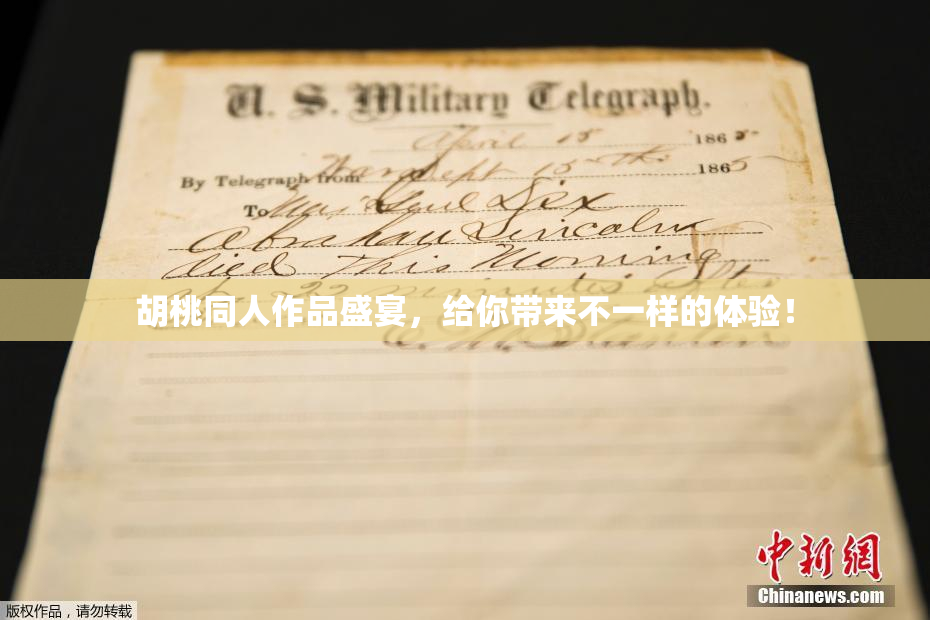 U. S. Military Telegraph.
April 15 1865
By Telegraph from War Dept 15th 1865
To Maj Genl Dix
Abraham Lincoln
died This Morning
at 22 minutes after
胡桃同人作品盛宴，给你带来不一样的体验！
E. M. Stanton
中新网
Chinanews.com
版权作品，请勿转载